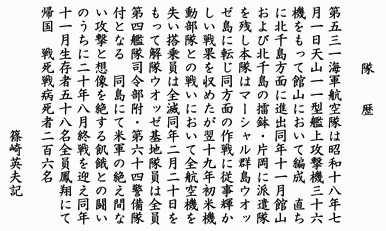 隊歴
第五三一海軍航空隊は昭和十八年七
月一日天山一一型艦上攻撃機三十六
機をもって館山において編成　直ち
に北千島方面に進出同年十一月館山
および北千島の擂鉢・片岡に派遣隊
を残し本隊はマーシャル群島ウオッ
ゼ島に転じ同方面の作戦に従事輝か
しい戦果を収めたが翌十九年初米機
動部隊との戦いにおいて全航空機を
失い搭乗員は全滅同年二月二十日を
もって解隊ウオッゼ基地隊員は全員
第四艦隊司令部附・第六十四警備隊
付となる　同島にて米軍の絶え間な
い攻撃と想像を絶する飢餓との闘い
のうちに二十年八月終戦を迎え同年
十一月生存者五十八名全員鳳翔にて
帰国　戦死戦病死者二百六名
篠崎英夫記